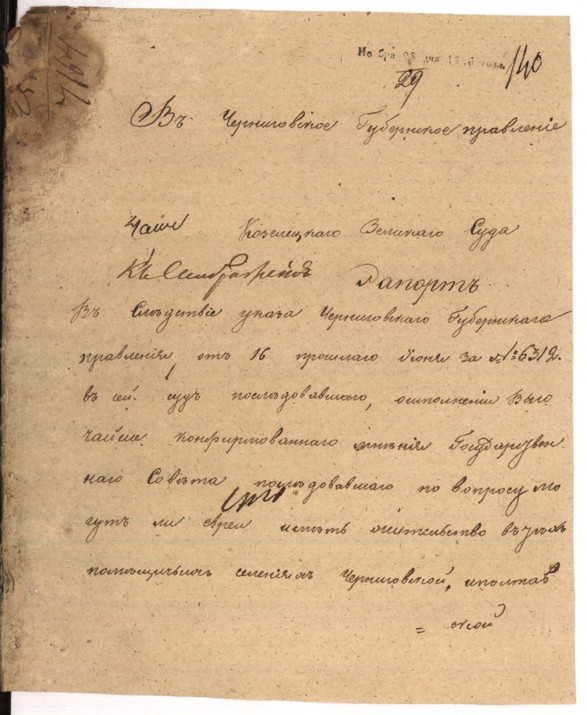 140
29
Въ Черниговское Губернское правленіе
Козелецкаго Земскаго Суда
Рапортъ
Въ Следствіе указа Черниговскаго Губернскаго
правленія, отъ 16 прошлаго Іюня за №6312.
въ сей судъ последовавшаго, о исполненіи Высо
чайше конфирмованнаго мненія Государствен
наго Совета последовавшаго по вопросу мо
гутъ ли евреи иметь жительство въ
помещичьихъ селеніяхъ Черниговской, и полтав
= ской